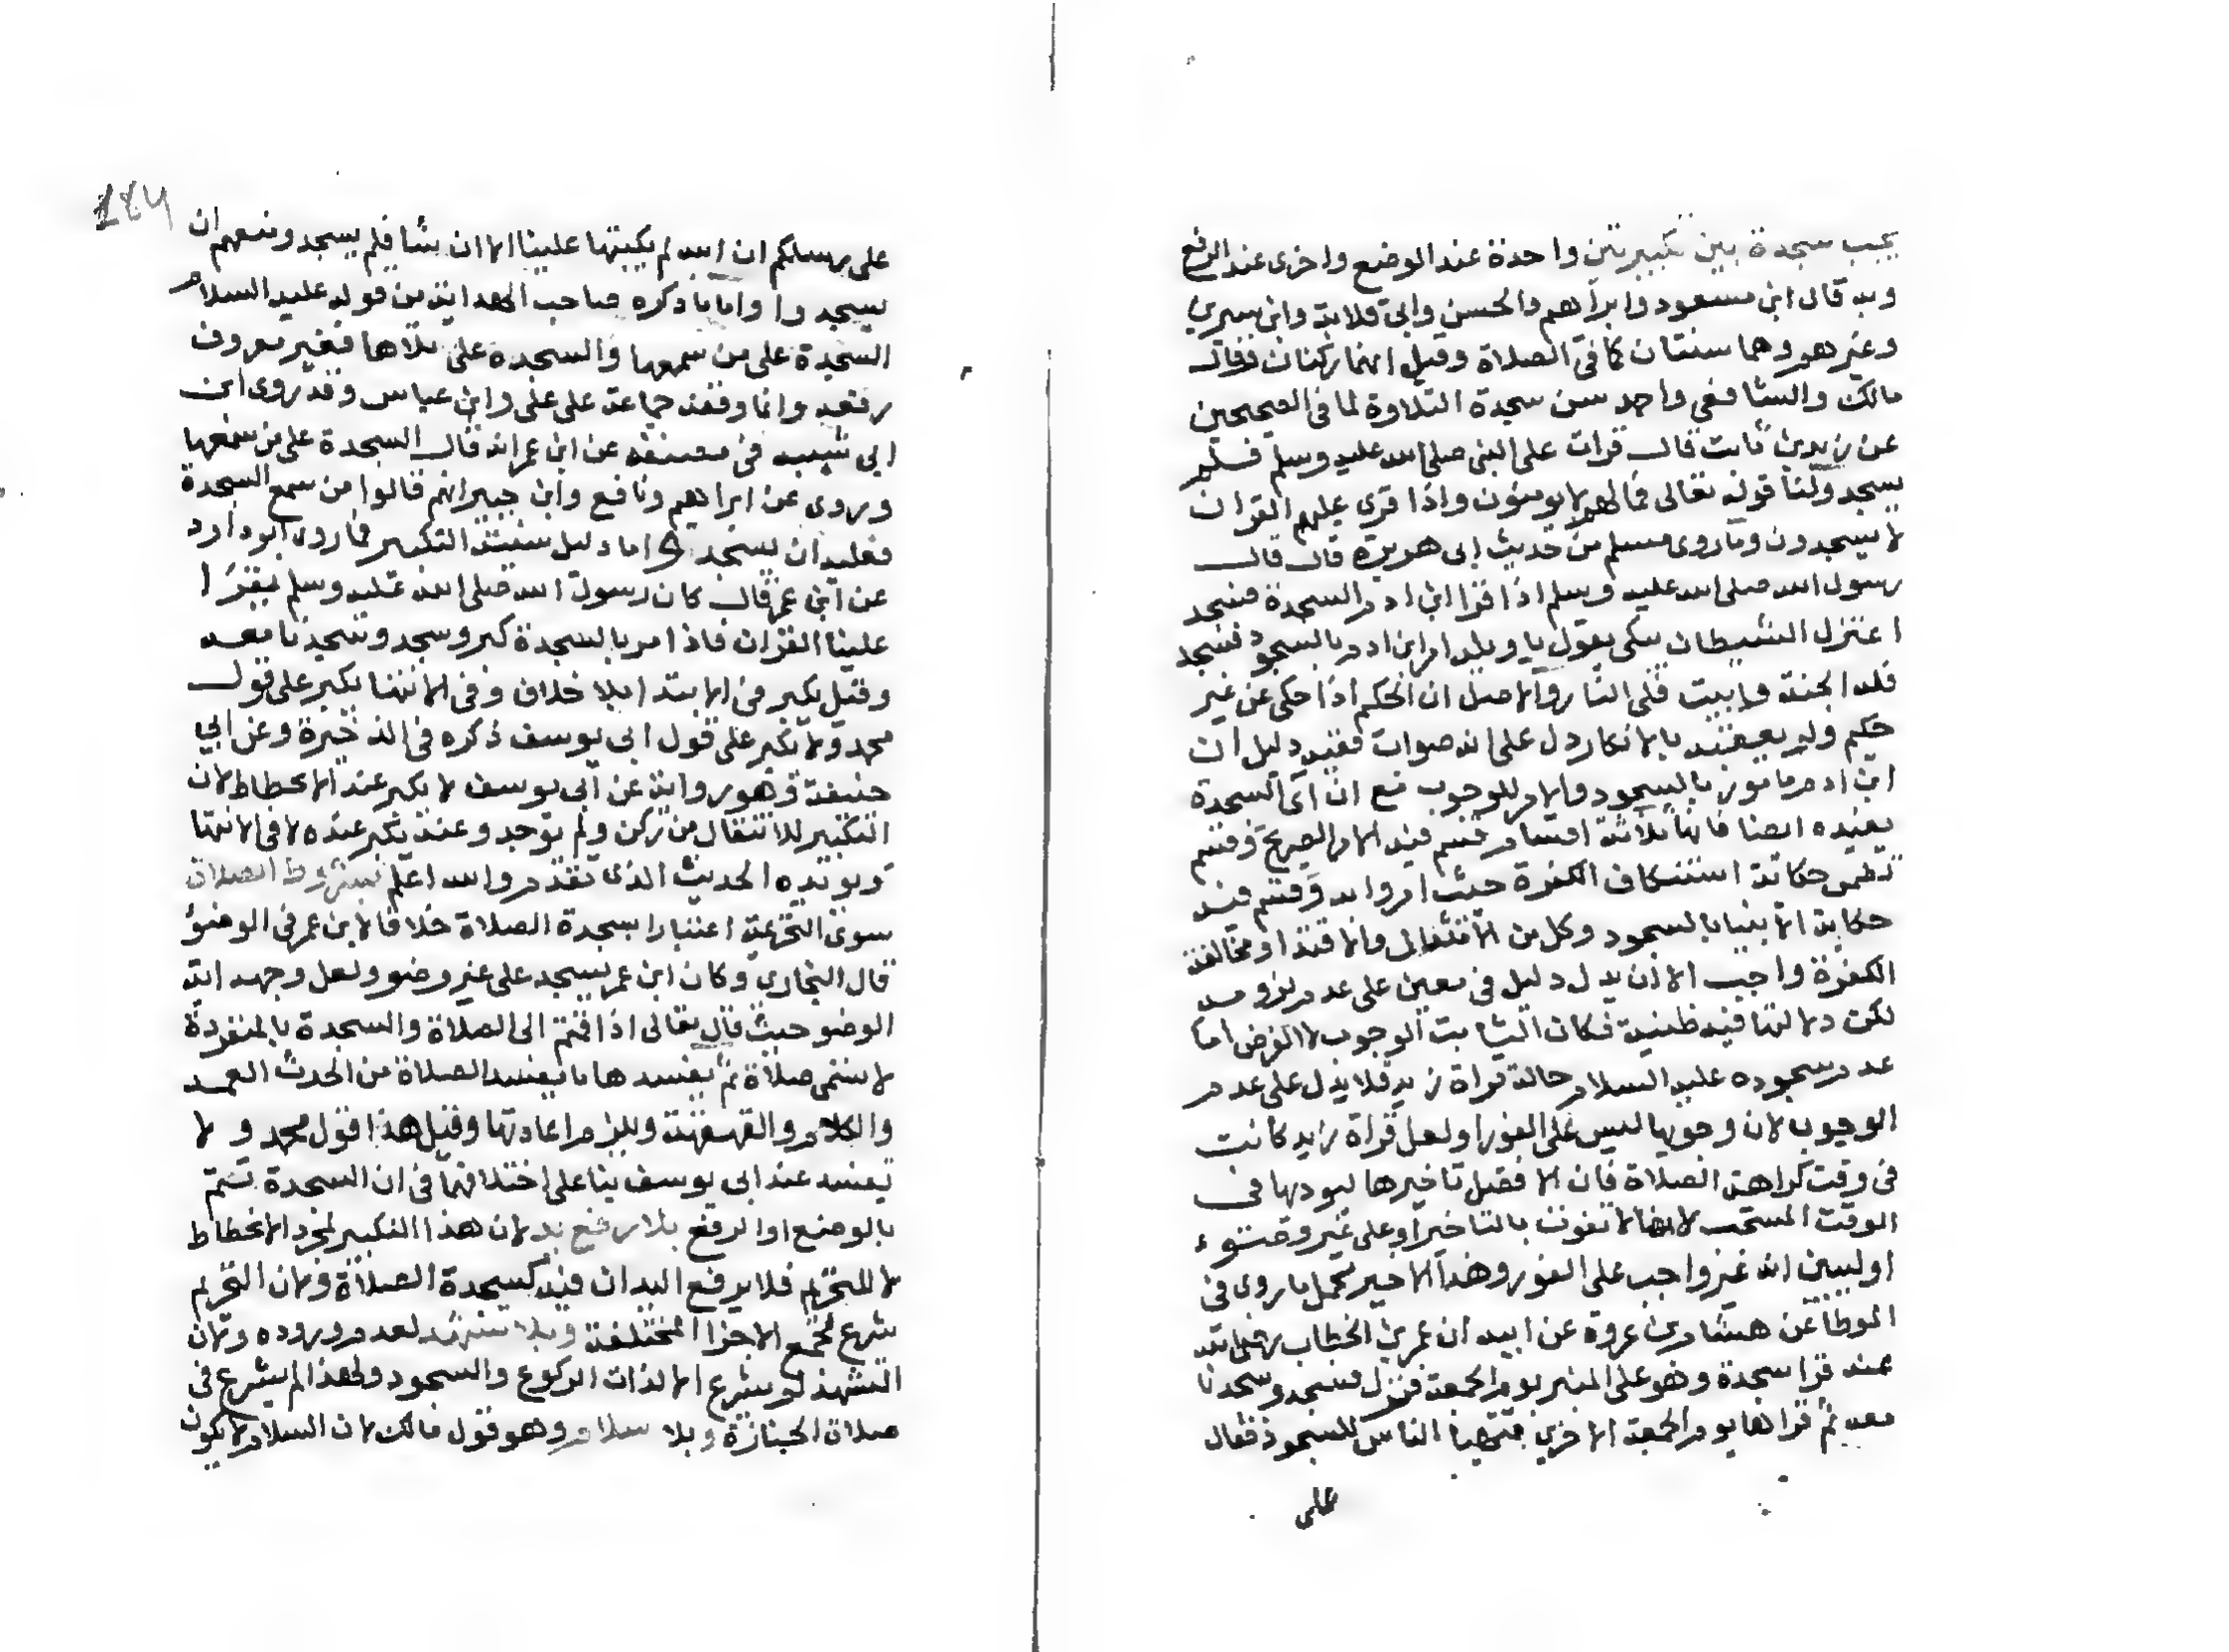 يجب سجدة بين تكبيرتين واحدة عند الوضع واخرى عند الرفع
وبه قال ابن مسعود وابراهيم والحسن وابي قلابة وابن سيرين
وغيرهم وهما سنتان كما في الصلاة وقيل انهما ركنان فقال
مالك والشافعي واحمد سن سجدة التلاوة لما في الصحيحين
عن زيد بن ثابت قال قرات على النبي صلى الله عليه وسلم فلم
يسجد ولنا قوله تعالى فما لهم لا يومنون واذا قرى عليهم القران
لا يسجدون وما روى مسلم من حديث ابي هريرة قال قال
رسول الله صلى الله عليه وسلم اذا قرا ابن ادم السجدة فسجد
اعتزل الشيطان يبكى يقول يا ويله امر ابن ادم بالسجود فسجد
فله الجنة وابيت فلى النار والاصل ان الحكم اذا حكى عن غير
حكيم ولم يعقبه بالانكار دل على انه صواب ففيه دليل ان
ابن ادم مامور بالسجود والامر للوجوب مع ان آى السجدة
يفيده ايضا فانها ثلاثة اقسام قسم فيه الامر الصريح وقسم
تضمن حكاية استنكاف الكفرة حيث امروا به وقسم فيه
حكاية الانبيا بالسجود وكل من الامتثال والاقتدا ومخالفة
الكفرة واجب الا ان يدل دليل في معين على عدم لزومه
لكن دلالتها فيه ظنية فكان الثابت الوجوب لا الفرض اما
عدم سجوده عليه السلام حالة قراة زيد فلا يدل على عدم
الوجوب لان وجوبها ليس على الفور اولعل قراة زيد كانت
في وقت كراهة الصلاة فان الافضل تاخيرها ليوديها في
الوقت المستحب لانها لا تفوت بالتاخير او على غير وضوء
اوليبين انه غير واجب على الفور وهذا الاخير يحمل ما روى في
الموطا عن هشام بن عروة عن ابيه ان عمر بن الخطاب رضي الله
عنه قرا سجدة وهو على المنبر يوم الجمعة فنزل فسجد وسجدنا
معه ثم قراها يوم الجمعة الاخرى فتهيا الناس للسجود فقال
على
184
على رسلكم ان الله لم يكتبها علينا الا ان يشا فلم يسجد ومنعهم ان
يسجدوا واما ما ذكره صاحب الهداية من قوله عليه السلام
السجدة على من سمعها والسجدة على تلاها فغير معروف
رفعه وانما وقفه جماعة على على وابن عباس وقد روى ابن
ابي شيبه في مصنفه عن ابن عمر انه قال السجدة على من سمعها
وروى عن ابراهيم ونافع وابن جبير انهم قالوا من سمع السجدة
فعليه ان يسجد اما دليل سنية التكبير فما روى ابو داود
عن ابن عمر قال كان رسول الله صلى الله عليه وسلم يقرا
علينا القران فاذا مر بالسجدة كبر وسجد وسجدنا معه
وقيل يكبر في الابتدا بلا خلاف وفي الانتها يكبر على قول
محمد ولا يكبر على قول ابي يوسف ذكره في الذخيرة وعن ابي
حنيفة وهو رواية عن ابي يوسف لا يكبر عند الانحطاط لان
التكبير للانتقال من ركن ولم يوجد وعنه يكبر عنده لا في الانتها
ويويده الحديث الذى تقدم والله اعلم بشروط الصلاة
سوى التحريمة اعتبارا بسجدة الصلاة خلافا لابن عمر في الوضؤ
قال البخارى وكان ابن عمر يسجد على غير وضو ولعل وجهه اية
الوضو حيث قال تعالى اذا قمتم الى الصلاة والسجدة بالمنفردة
لا تسمى صلاة ثم يفسدها ما يفسد الصلاة من الحدث العمد
والكلام والقهقهة ويلزم اعادتها وقيل هذا قول محمد ولا
تفسد عند ابي يوسف بنا على اختلافهما في ان السجدة تتم
بالوضع او الرفع بلا رفع يد لان هذا التكبير لمجرد الانحطاط
لا للتحريم فلا يرفع اليدان فيه كسجدة الصلاة ولان التحريم
شرع لجمع الاجزا المختلفة وبلا تشهد لعدم وروده ولان
التشهد لم يشرع الا لذات الركوع والسجود ولهذا لم يشرع في
صلاة الجنازة وبلا سلام وهو قول مالك لان السلام لا يكون